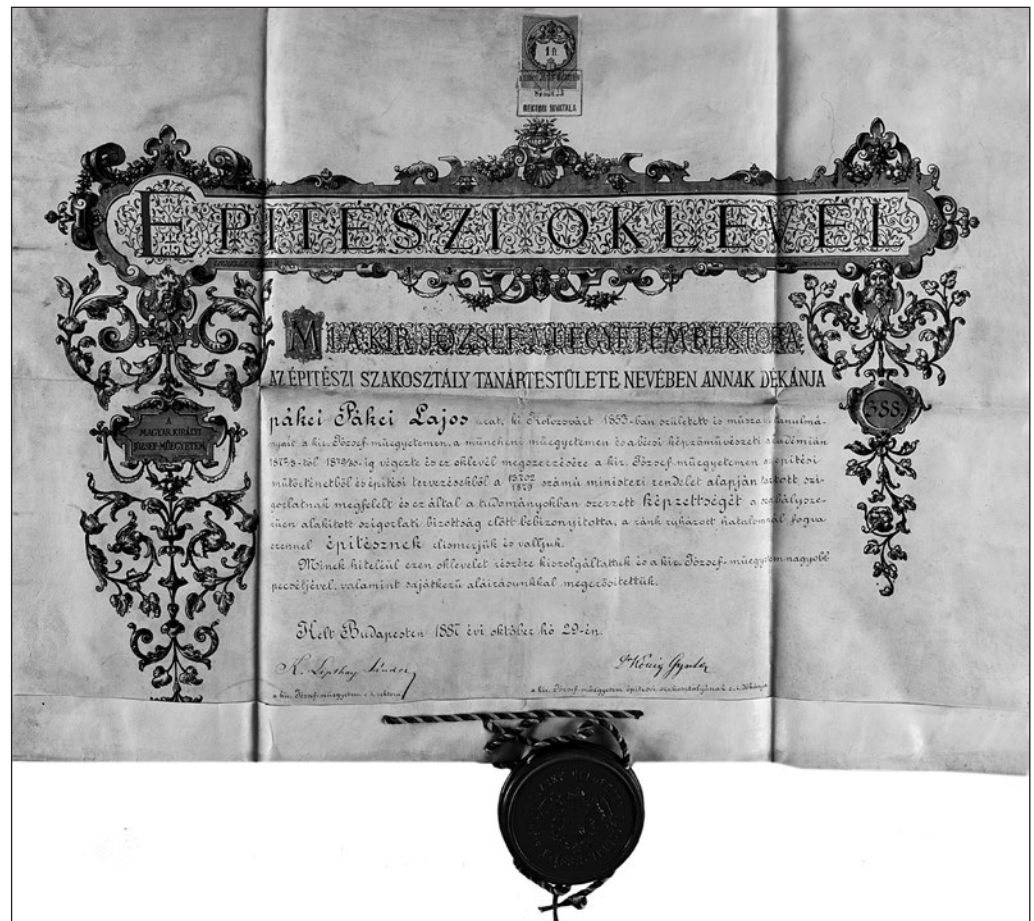 1 ft
REKTORI HIVATALA
EPITESZI OKLEVEL
MI A KIR. JÓZSEF-MŰEGYETEM REKTORA,
AZ ÉPITÉSZI SZAKOSZTÁLY TANÁRTESTÜLETE NEVÉBEN ANNAK DÉKÁNJA
A
MAGYAR KIRÁLYI
JÓZSEF-MŰEGYETEM
388.
pákei Pákei Lajos urat, ki Kolozsvárt 1853-ban született és műszaki tanulmá-
nyait a kir. József-műegyetemen, a müncheni műegyetemen és a bécsi képzőművészeti akadémián
-től -ig végezte és ez oklevél megszerzésére a kir. József-műegyetemen az építési
műtörténetből és építési tervezésekből a 13.702/1879 számú ministeri rendelet alapján tartott szi-
gorlatnak megfelelt és ez által a tudományokban szerzett képzettségét a szabálysze-
rüen alakitott szigorlati bizottság előtt bebizonyította, a ránk ruházott hatalomnál fogva
ezennel építésznek elismerjük és valljuk.
Minek hiteléül ezen oklevelet részére kiszolgáltattuk és a kir. József-műegyetem nagyobb
pecsétjével, valamint sajátkezű aláirásunkkal megerősitettük.
Kelt Budapesten 1887 évi október hó 29-én.
K. Lipthay Sándor
Dr König Gyula
a kir. József-műegyetem e. i. rektora
a kir. József-műegyetem építészi szakosztályának e. i. dékánja